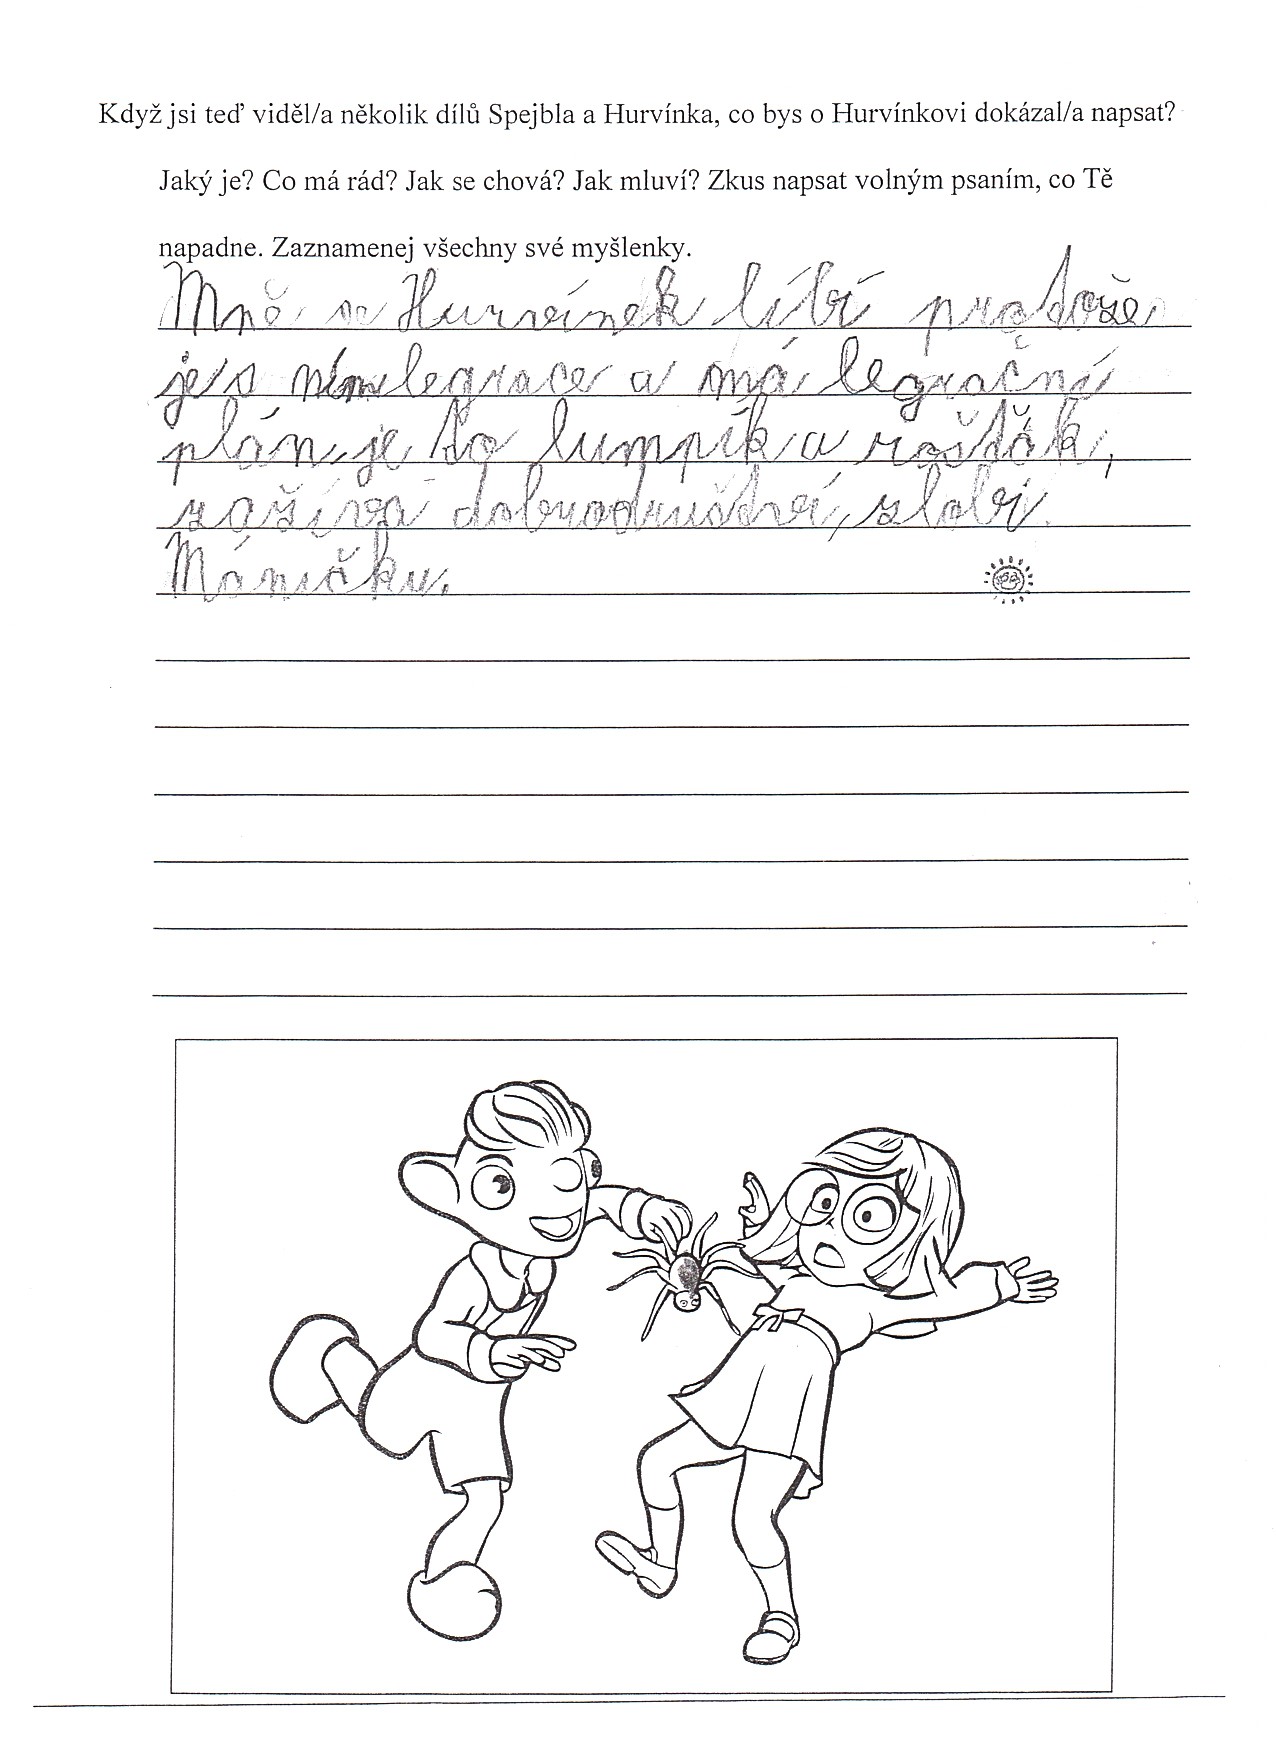 Když jsi teď viděl/a několik dílů Spejbla a Hurvínka, co bys o Hurvínkovi dokázal/a napsat?
Jaký je? Co má rád? Jak se chová? Jak mluví? Zkus napsat volným psaním, co Tě
napadne. Zaznamenej všechny své myšlenky.
Mně se Hurvínek líbí protože
je s ním legrace a má legrační
plán, je to lumpík a rošťák,
zažívá dobrodružství, zlobí
Máničku.